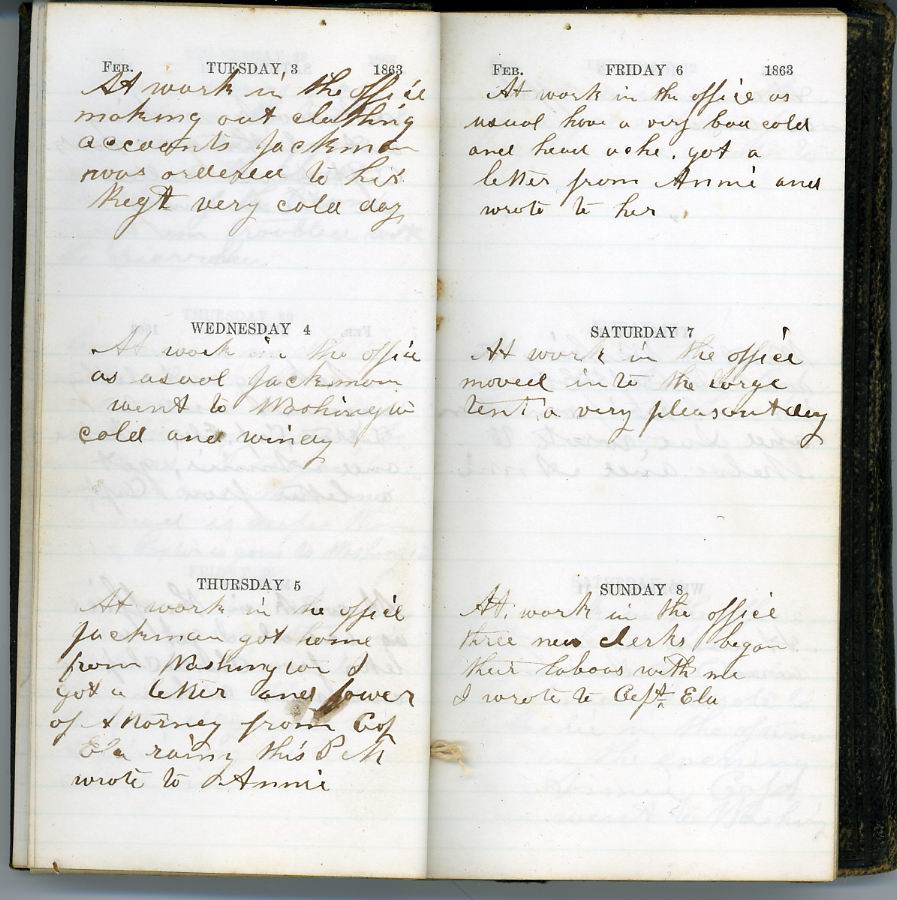 FEB. TUESDAY, 3 1863
At work in the office
making out clothing
accounts Jackman
was ordered to his
Regt very cold day
WEDNESDAY 4
At work in the office
as usual Jackman
went to Washington
cold and windy
THURSDAY 5
At work in the office
Jackman got home
from Washington I
got a letter and power
of Attorney from Cap
Ela rainy this P M
wrote to Annie
FEB. FRIDAY 6 1863
At work in the office as
usual have a very bad cold
and head ache. got a
letter from Annie and
wrote to her
SATURDAY 7
At work in the office
moved into the large
tent a very pleasant day
SUNDAY 8
At work in the office
three new clerks began
their labors with me
I wrote to Capt. Ela